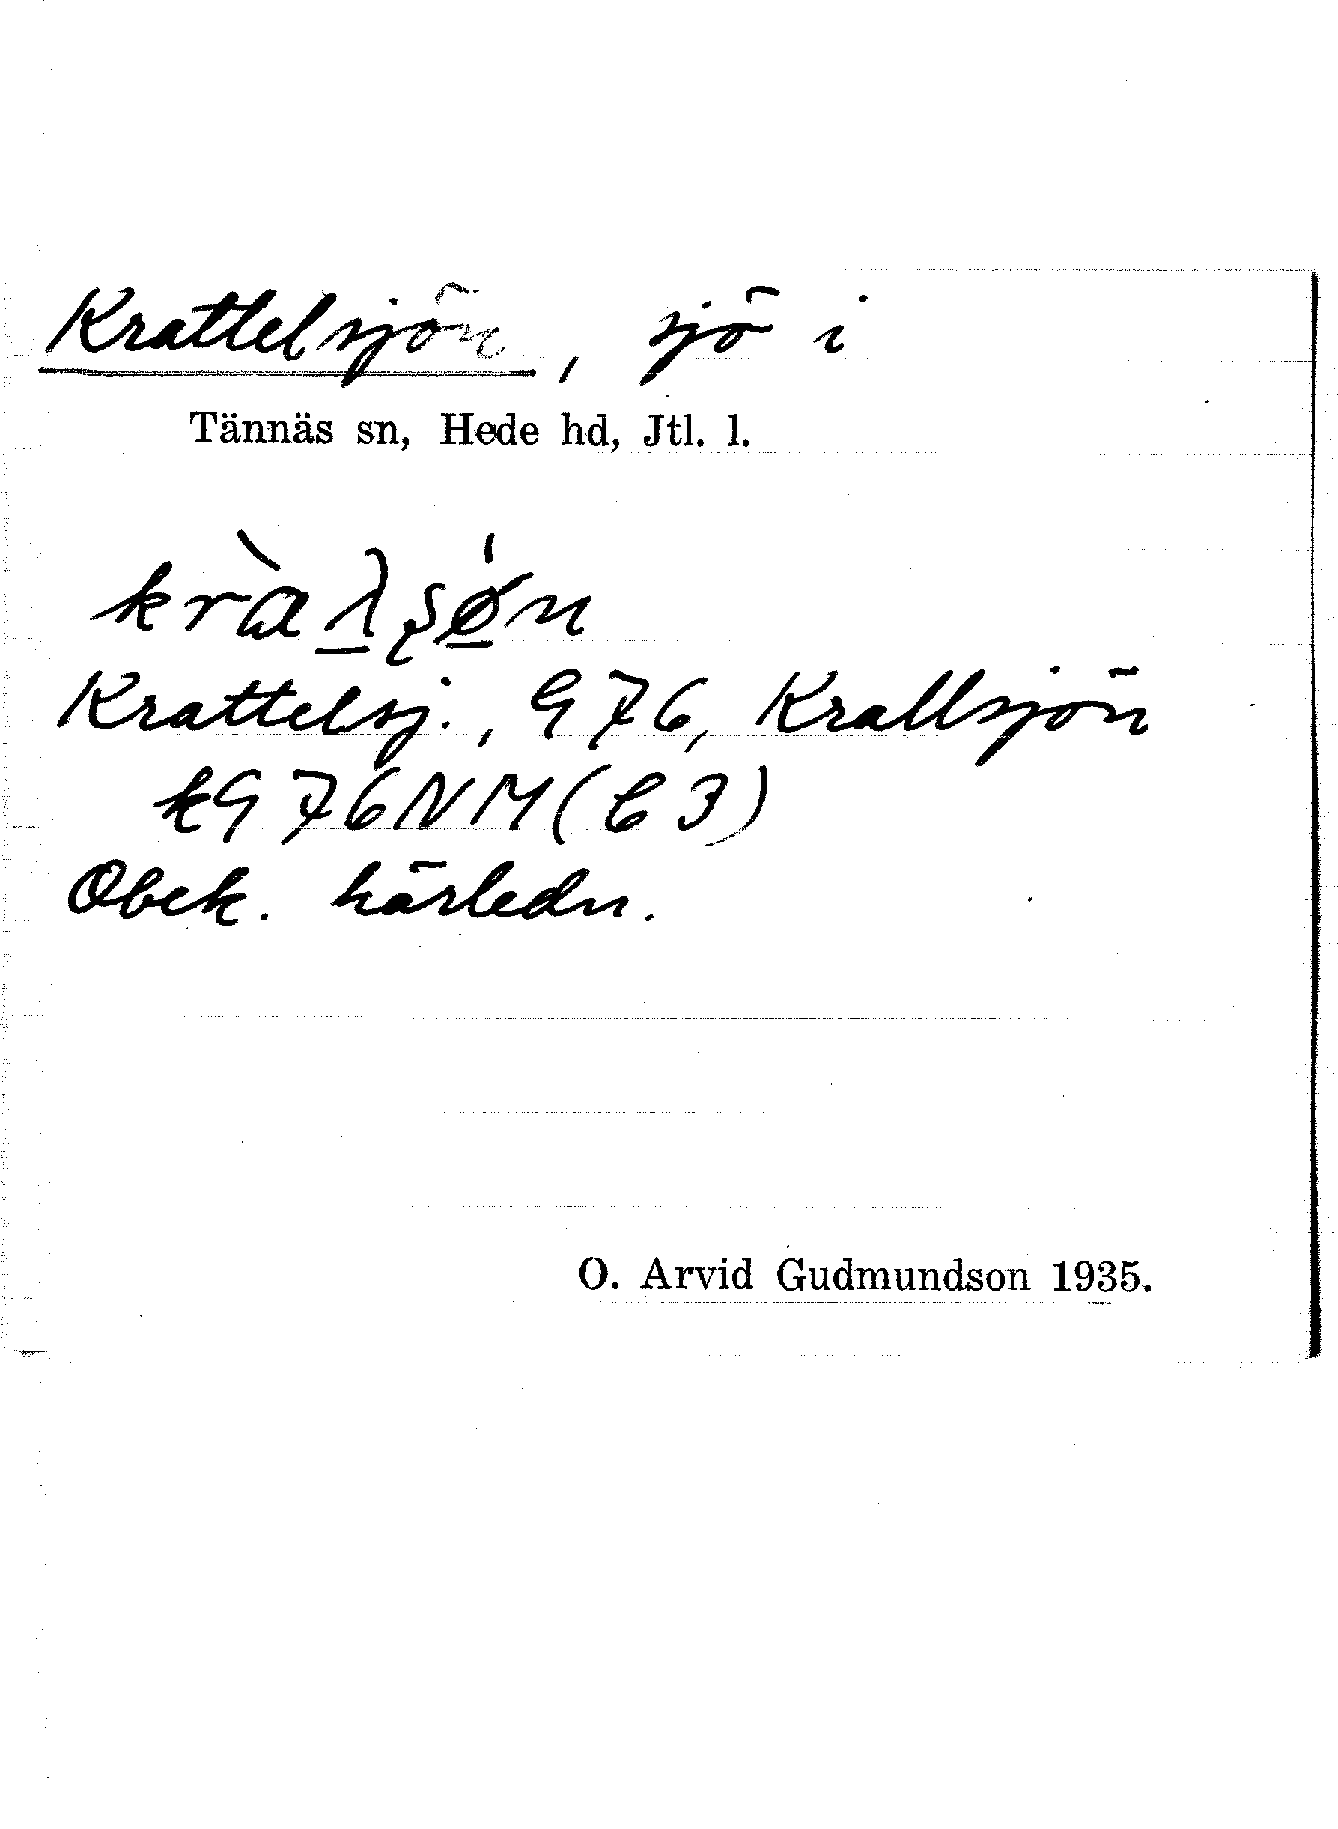 Krattelsjön, sjö i
Tännäs sn, Hede hd, Jtl. l.
Krattelsj., G 76, Krallsjön
kG 76 NM (C 3)
Obek. härledn.
O. Arvid Gudmundson 1935.